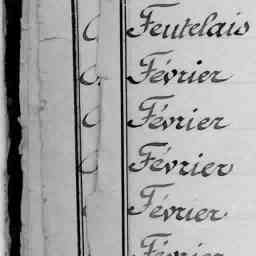 Feutelais
Février
Février
Février
Février
Février